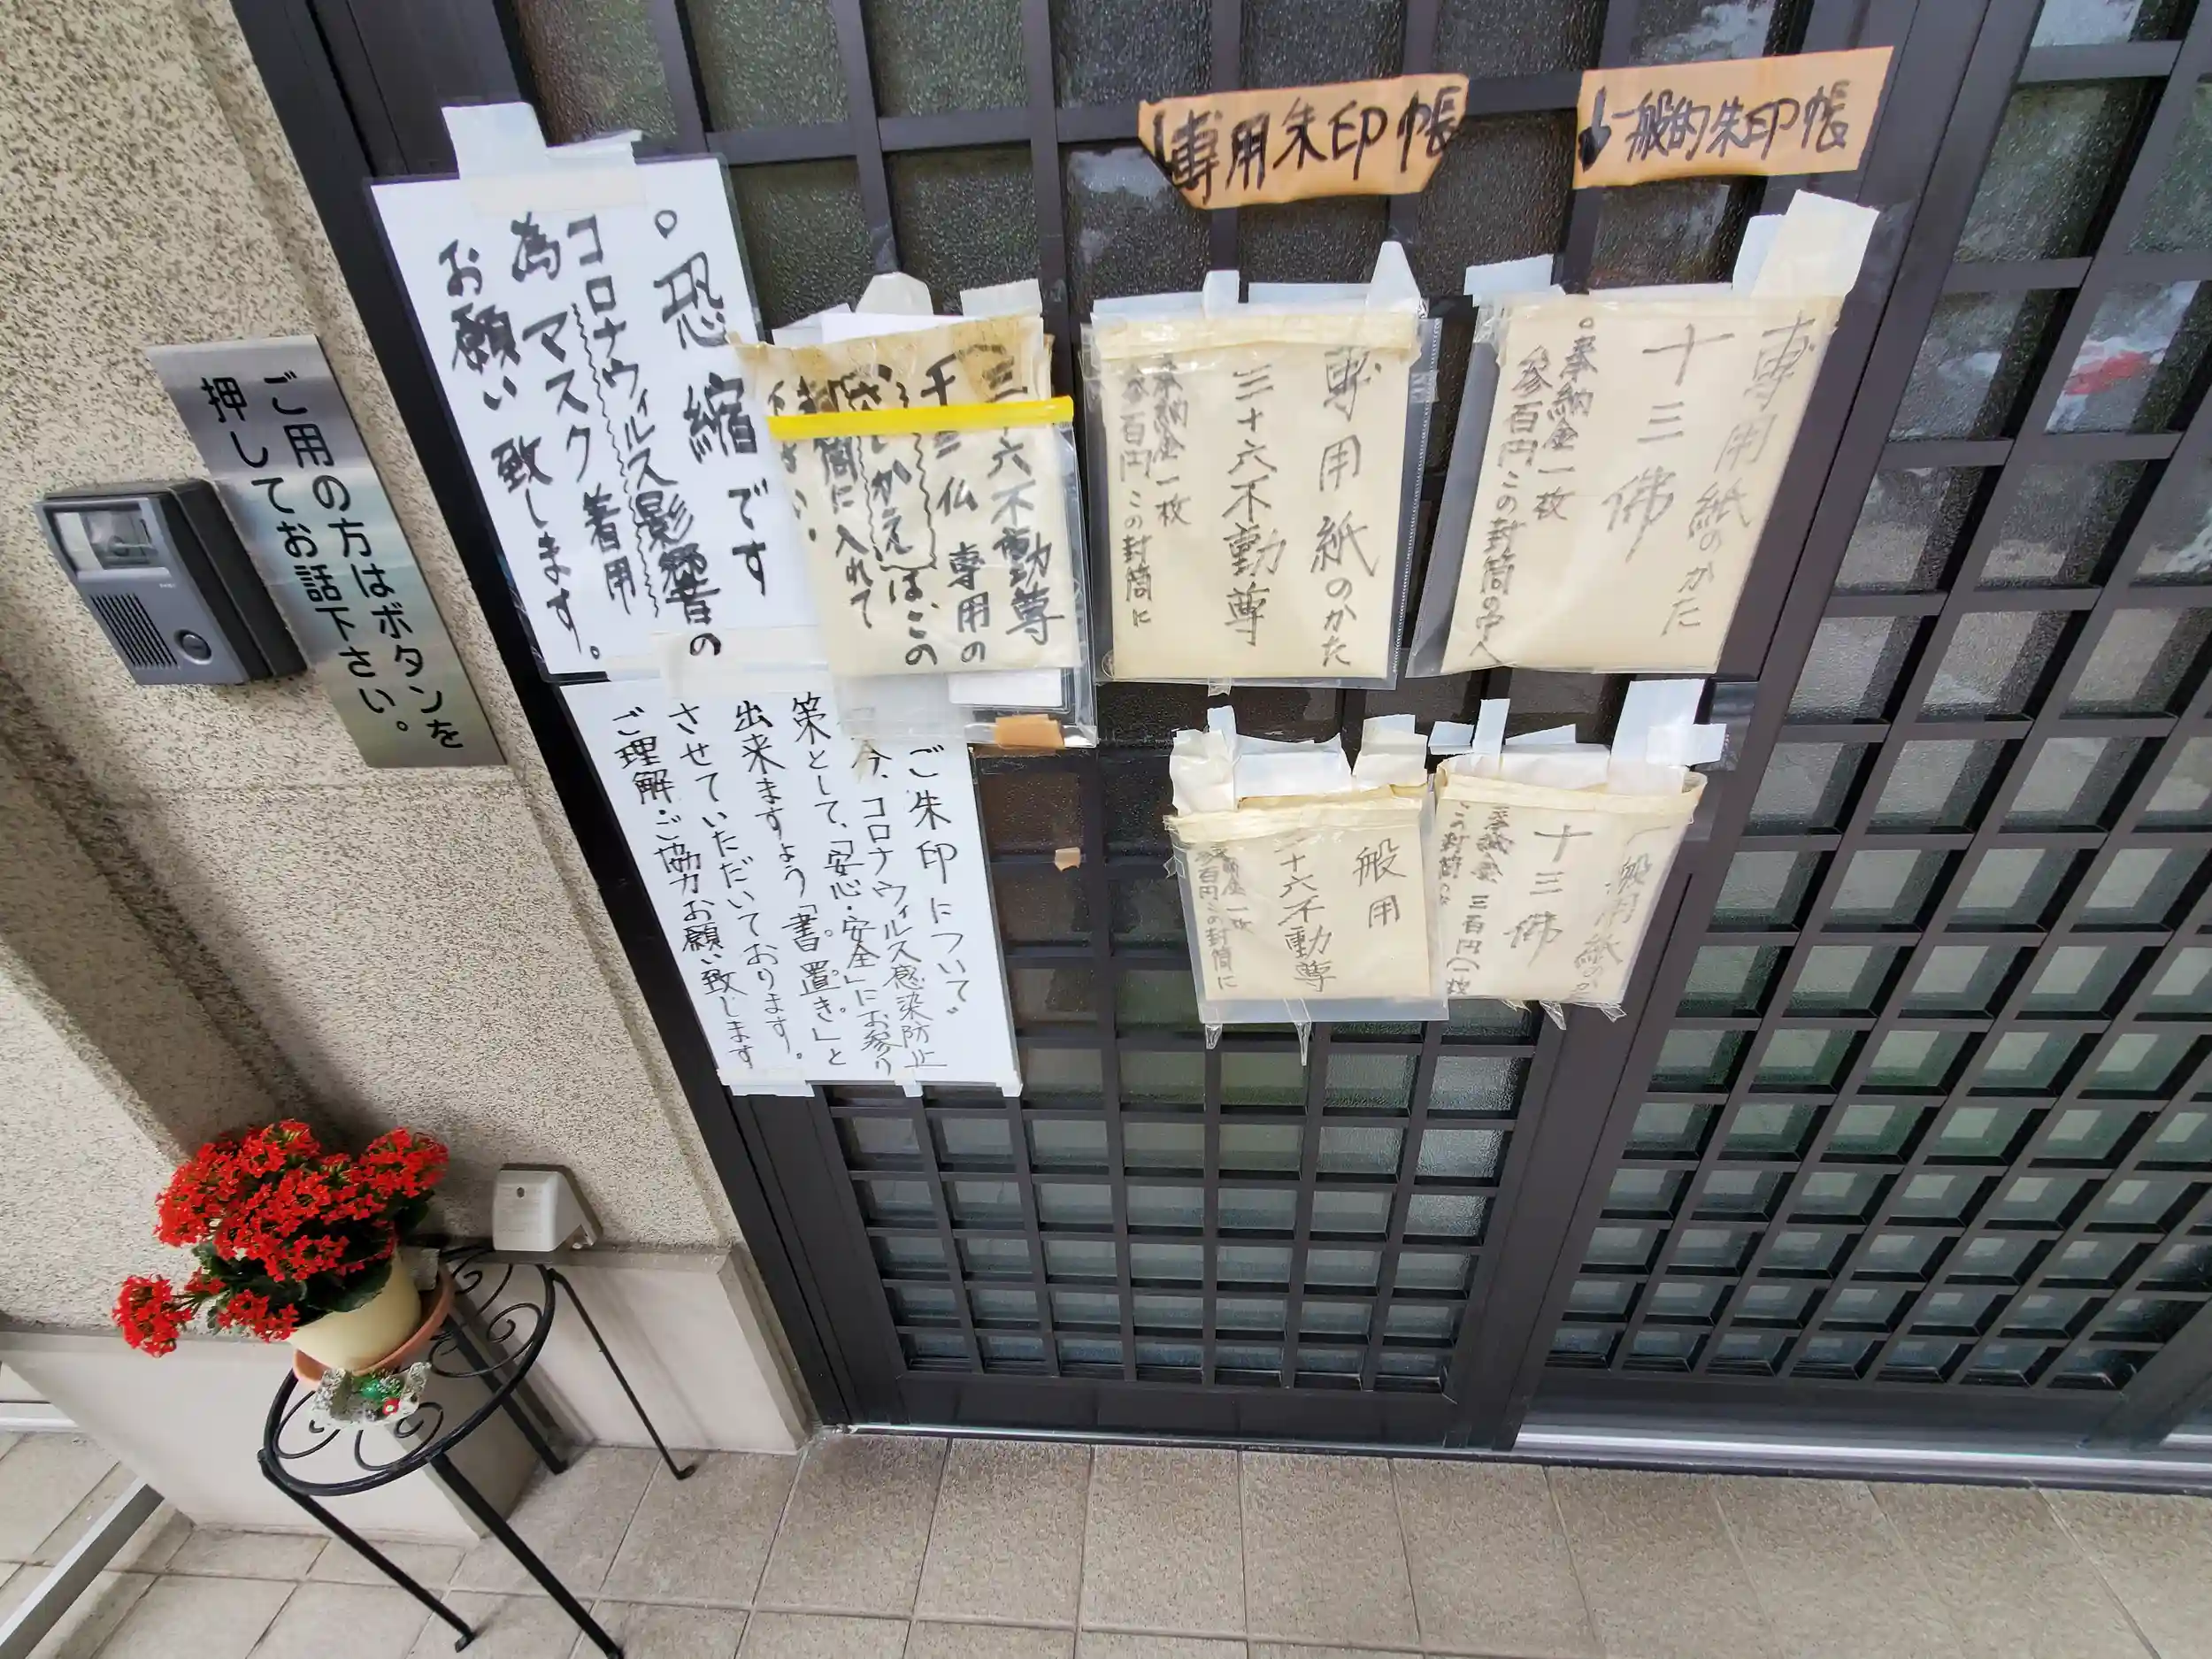 ご用の方はボタンを
押してお話下さい。
。恐縮です
コロナウィルス影響の
為マスク着用
お願い致します。
ご朱印について
今、コロナウィルス感染防止
策として、「安心・安全」にお参り
出来ますよう「書置き」と
させていただいております。
ご理解・ご協力お願い致します
三十六不動尊
十三仏 専用の
さしかえはこの
封筒に入れて
下さい。
専用朱印帳
↓一般的朱印帳
専用紙のかた
三十六不動尊
奉納金一枚
参百円この封筒に
専用紙のかた
十三佛
。奉納金一枚
参百円この封筒の中へ
一般用
三十六不動尊
一枚
参百円この封筒に
一般用紙のかた
十三佛
奉納金 三百円(一枚
この封筒